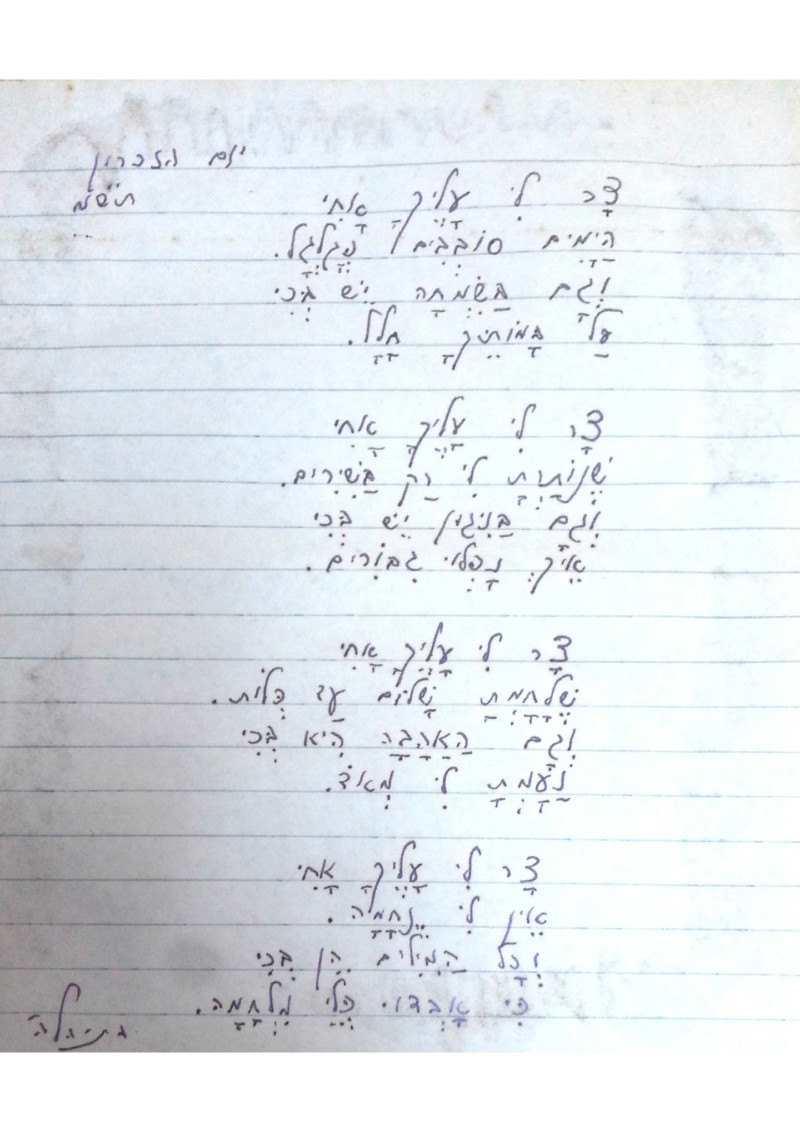 יום הזכרון
תש"מ
צַר לִי עָלֶיךָ אָחִי
הַיָּמִים סוֹבְבִים כְּגַלְגַּל.
וְגַם בַּשִּׂמְחָה יֵשׁ בְּכִי
עַל בָּמוֹתֶיךָ חָלָל.
צַר לִי עָלֶיךָ אָחִי
שֶׁנּוֹתַרְתָּ לִי רַק בַּשִּׁירִים.
וְגַם בַּנִּגּוּן יֵשׁ בְּכִי
אֵיךְ נָפְלוּ גִבּוֹרִים.
צַר לִי עָלֶיךָ אָחִי
שֶׁלָּחַמְתָּ שָׁלוֹם עַד כְּלוֹת.
וְגַם הָאַהֲבָה הִיא בְּכִי
נָעַמְתָּ לִי מְאוֹד.
צַר לִי עָלֶיךָ אָחִי
אֵין לִי נֶחָמָה.
וְכָל הַמִּילִים הֵן בְּכִי
כִּי אָבְדוּ כְּלֵי מִלְחָמָה.